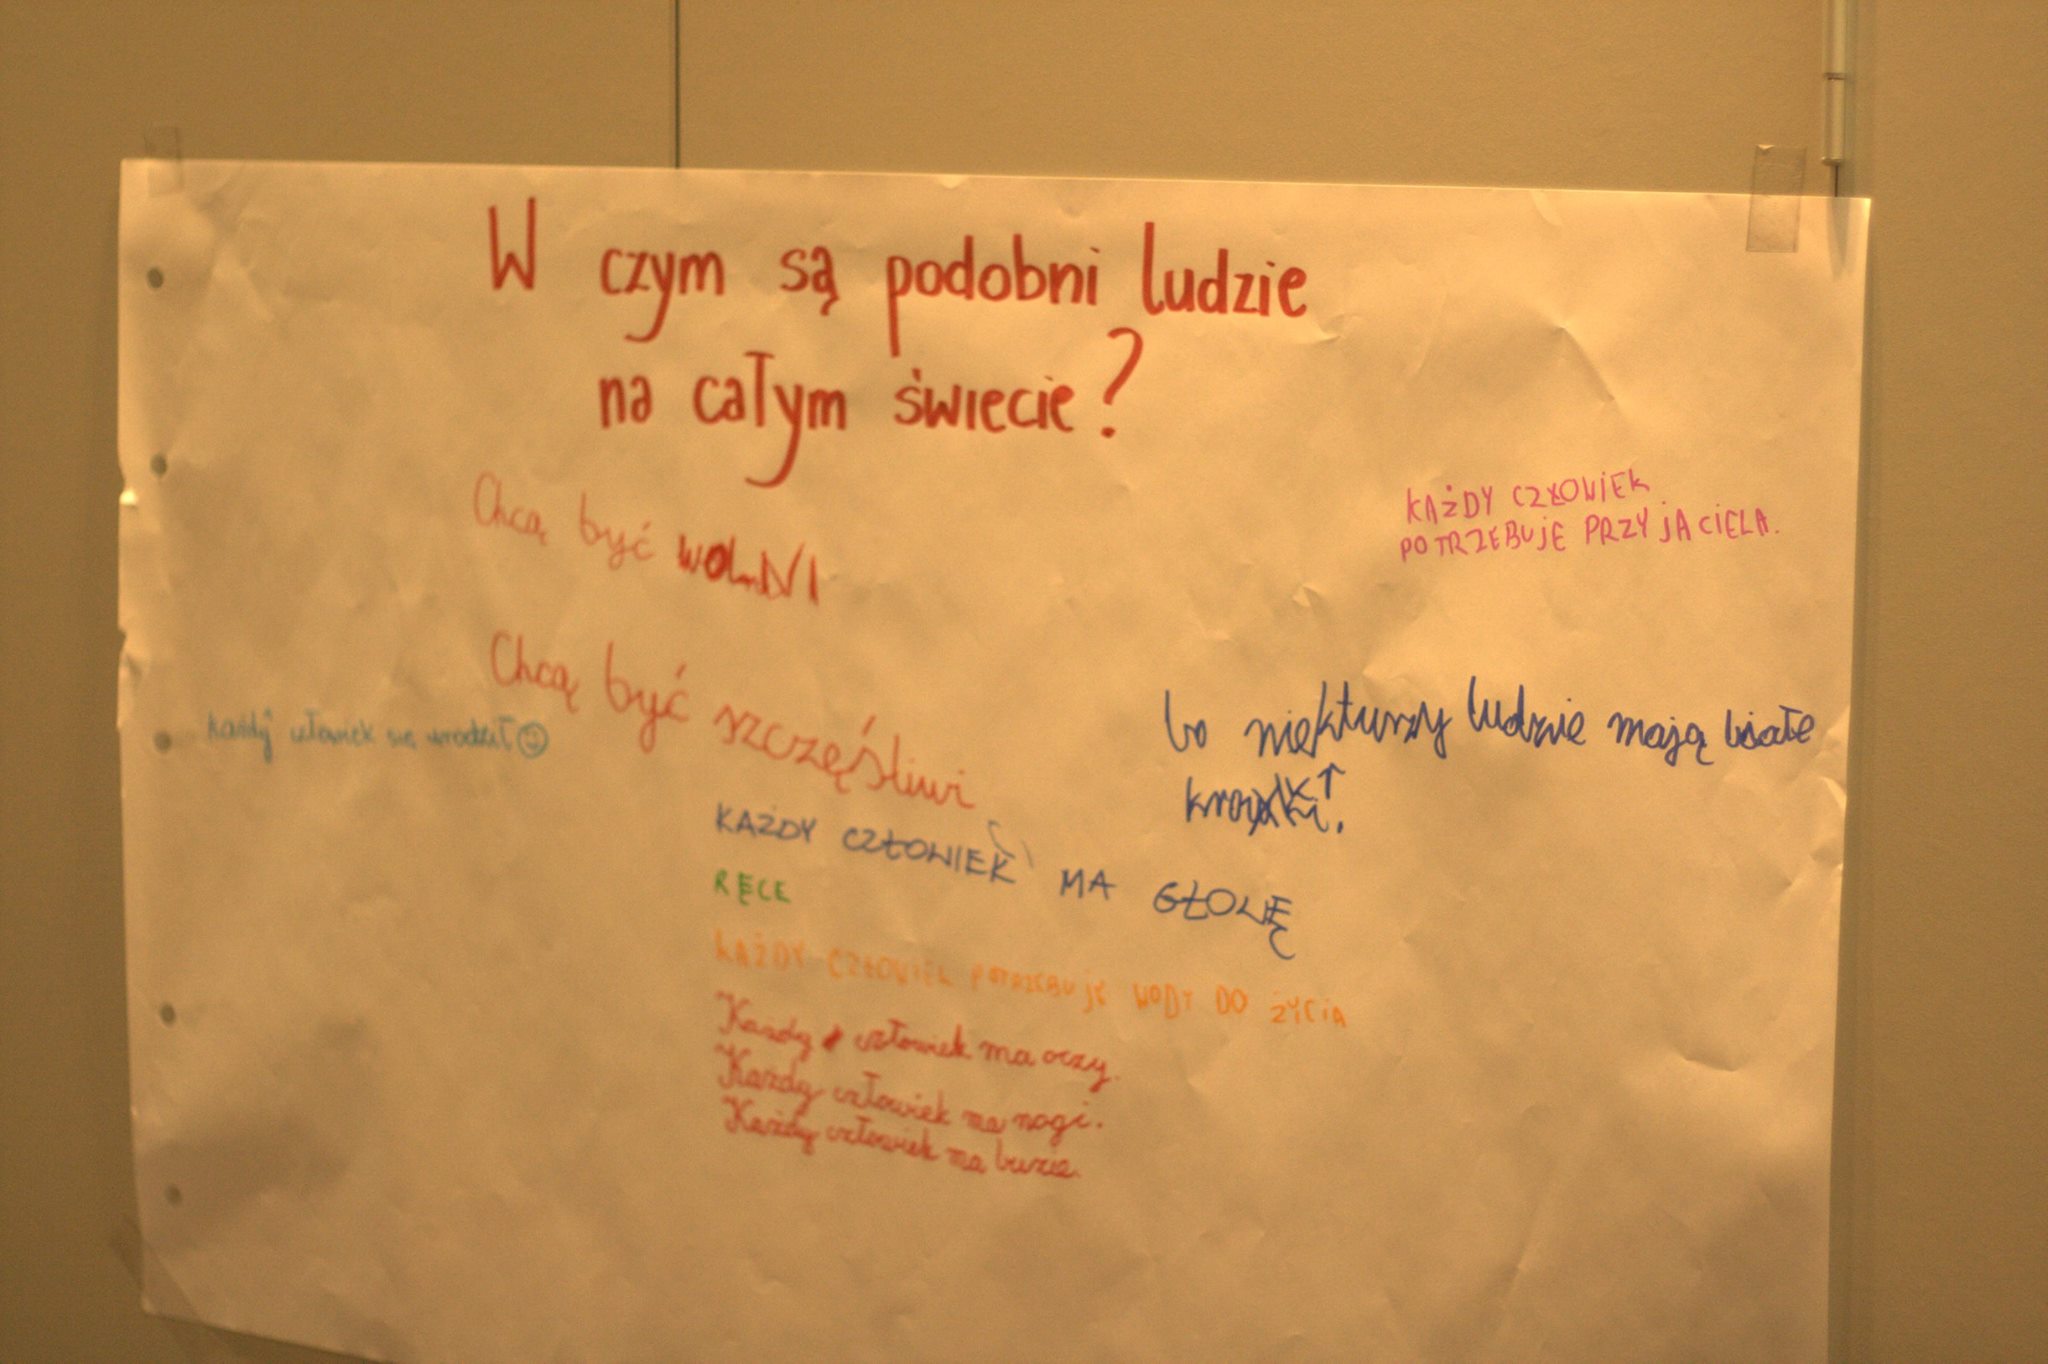 W czym są podobni ludzie
na całym świecie?
Chcą być wolNI
KAŻDY CZŁOWIEK
POTRZEBUJE PRZYJACIELA.
Chcą być szczęśliwi
Każdy człowiek się urodził ☺
bo niekturzy ludzie mają białe
KAŻDY CZŁOWIEK MA GŁOWĘ
RĘCE
KAŻDY CZŁOWIEK POTRZEBUJE WODY DO ŻYCIA
Każdy człowiek ma oczy.
Każdy człowiek ma nogi.
Każdy człowiek ma buzie.